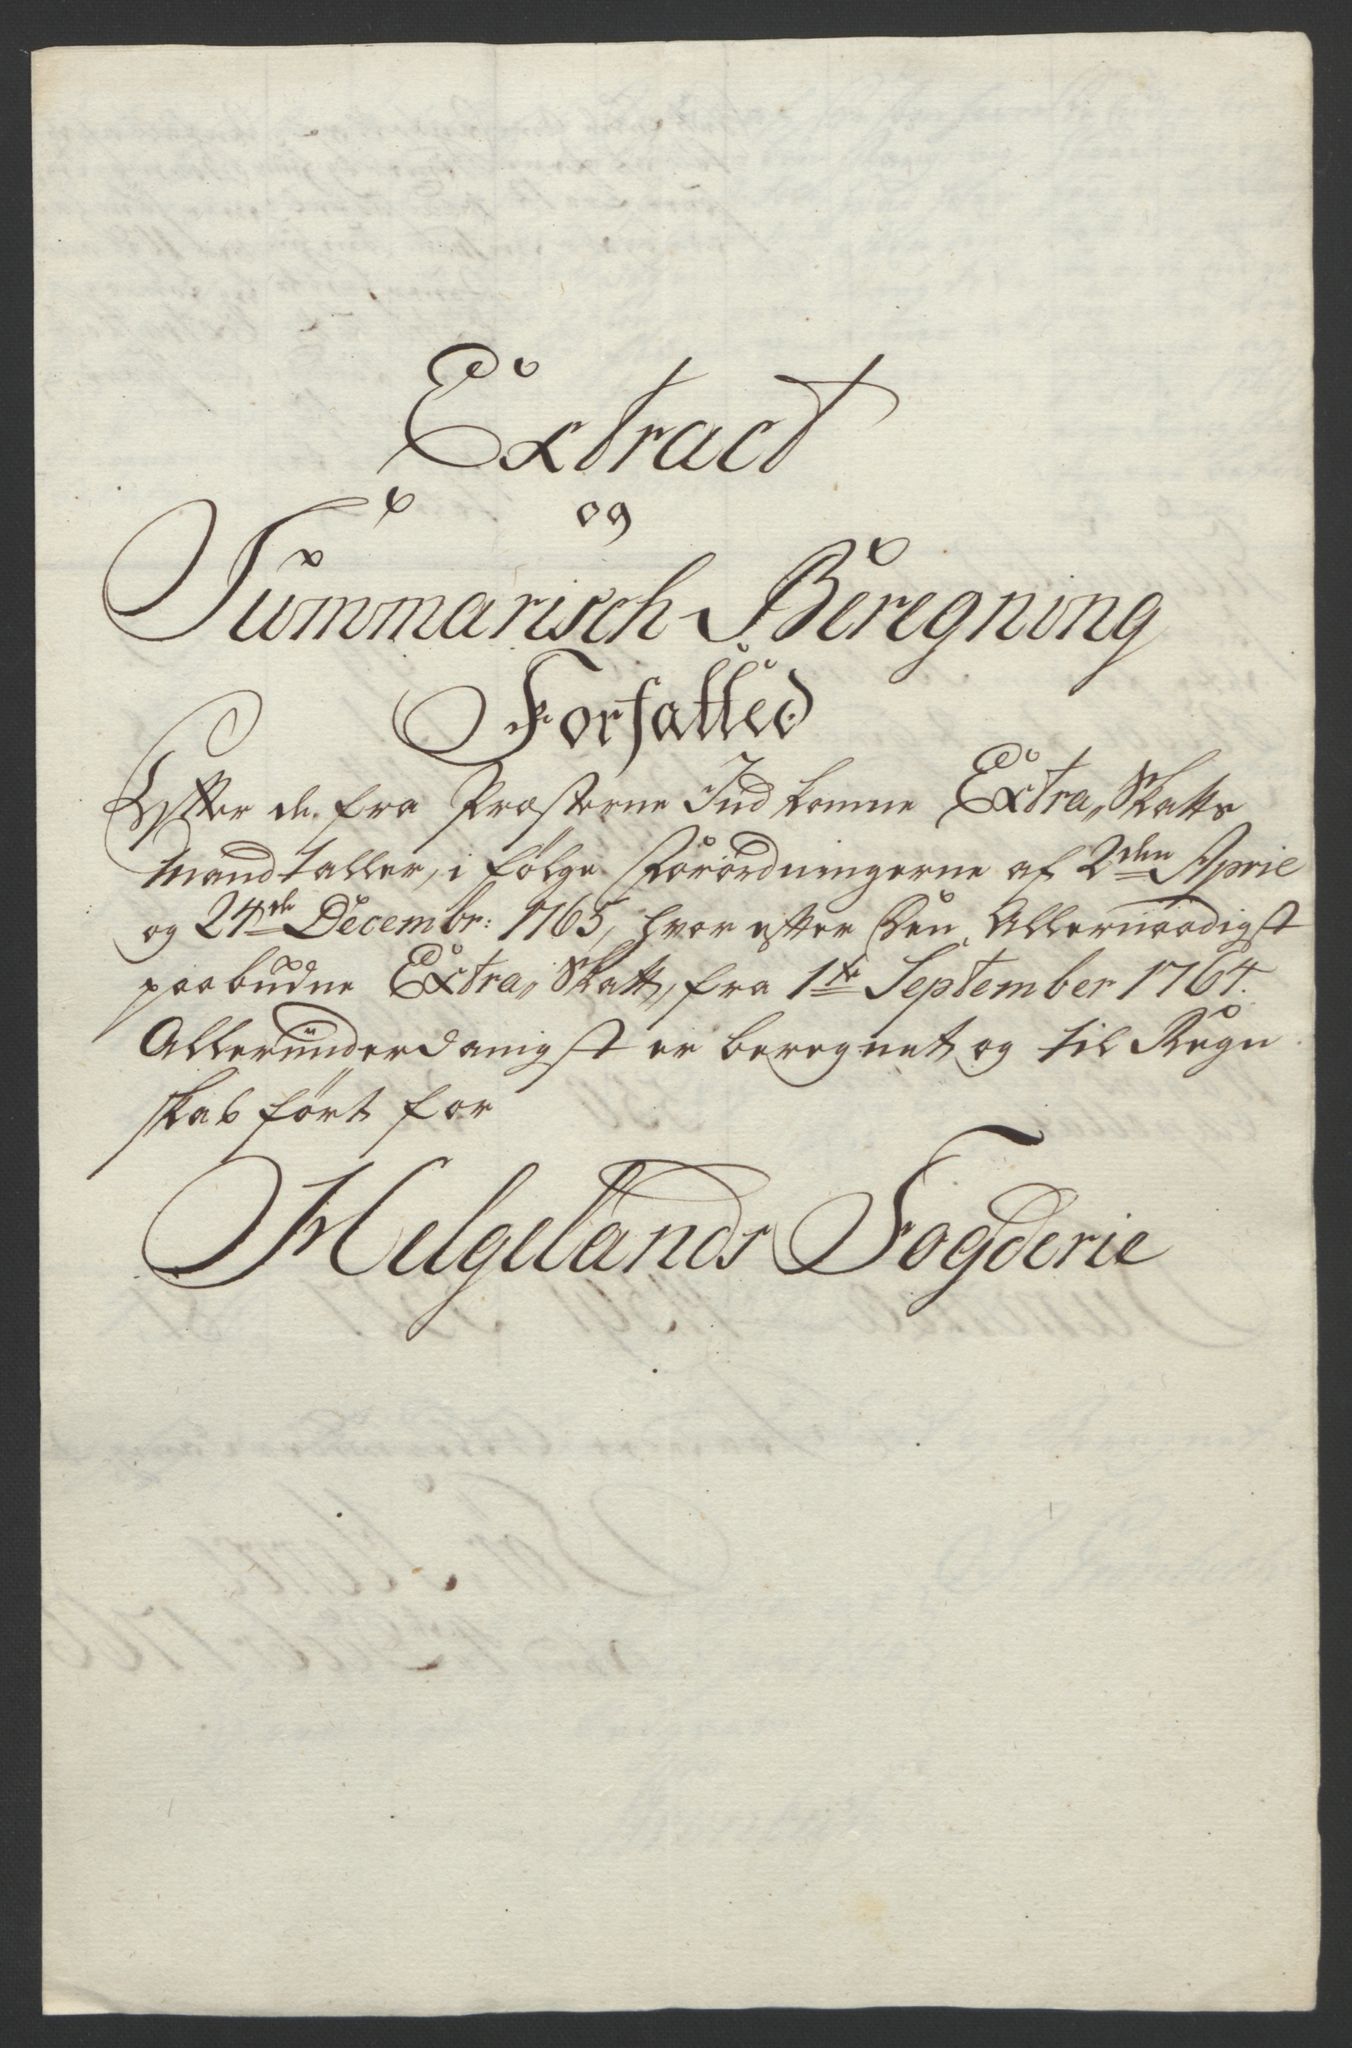 Extract
og
Summarisch Beregning
Forfatted
Efter de fra Præsterne Indkomne Extra, Skatts
Mandtaller, i følge Forordningerne af 2den April
og 24de Decembr: 1765, hvorefter Den Allernaadigst
paabudne Extra, Skatt, fra 1te September 1764.
Alleründerdanigst er beregnet og til Regn
skab ført for
Helgelands Fogderie